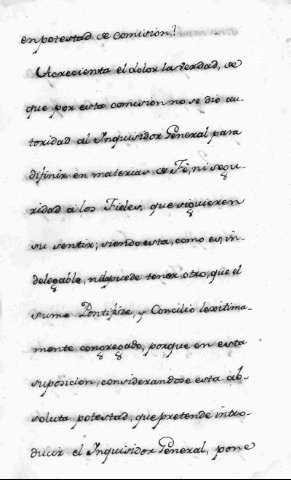 en potestad de comision?
Acrecienta el dolor la verdad, de
que por esta comision no se dió au-
toridad al Inquisidor General para
difinir en materias de Fé, ni segu-
ridad a los Fieles, que siguieren
su sentir; siendo esta, como es, in-
delegable, ni puede tener otro, que el
sumo Pontifize, y Concilio lexitima-
mente congregado, porque en esta
suposicion, considerandose esta ab-
soluta potestad, que pretende intro-
ducir el Inquisidor General, pone